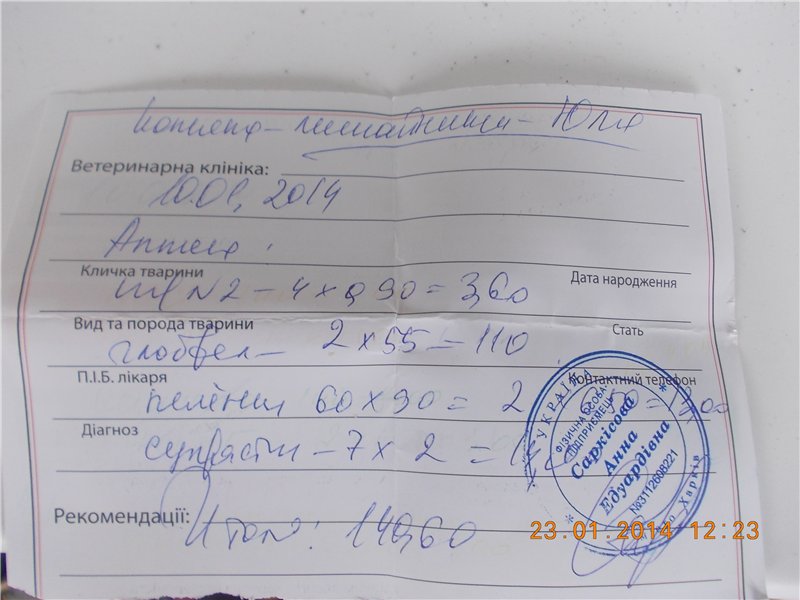 Котята - лишайники - Юля
Ветеринарна клініка:
10.01, 2014
Аптека:
Кличка тварини
Дата народження
шп N2 - 4 x 0 90 = 3,60
Вид та порода тварини
Стать
2 x 55 = 110
П.І.Б. лікаря
Контактний телефон
пелёнки 60 x 90 = 2
Діагноз
супрастин - 7 x 2 =
Рекомендації:
Итого: 149,60
УКРАЇНА
ФІЗИЧНА ОСОБА-
ПІДПРИЄМЕЦЬ
Саркісова
Анна
Едуардівна
№3112608221
м. Харків
23.01.2014 12:23